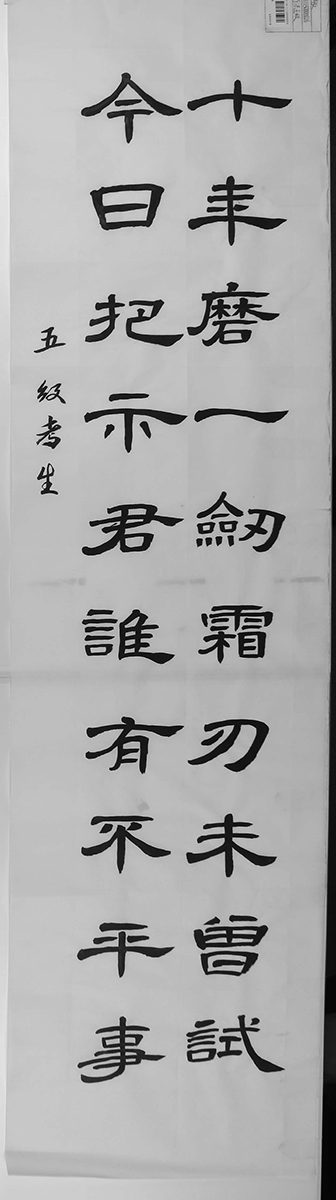 十年磨一劒霜刃未曾試
今日把示君誰有不平事
五级考生